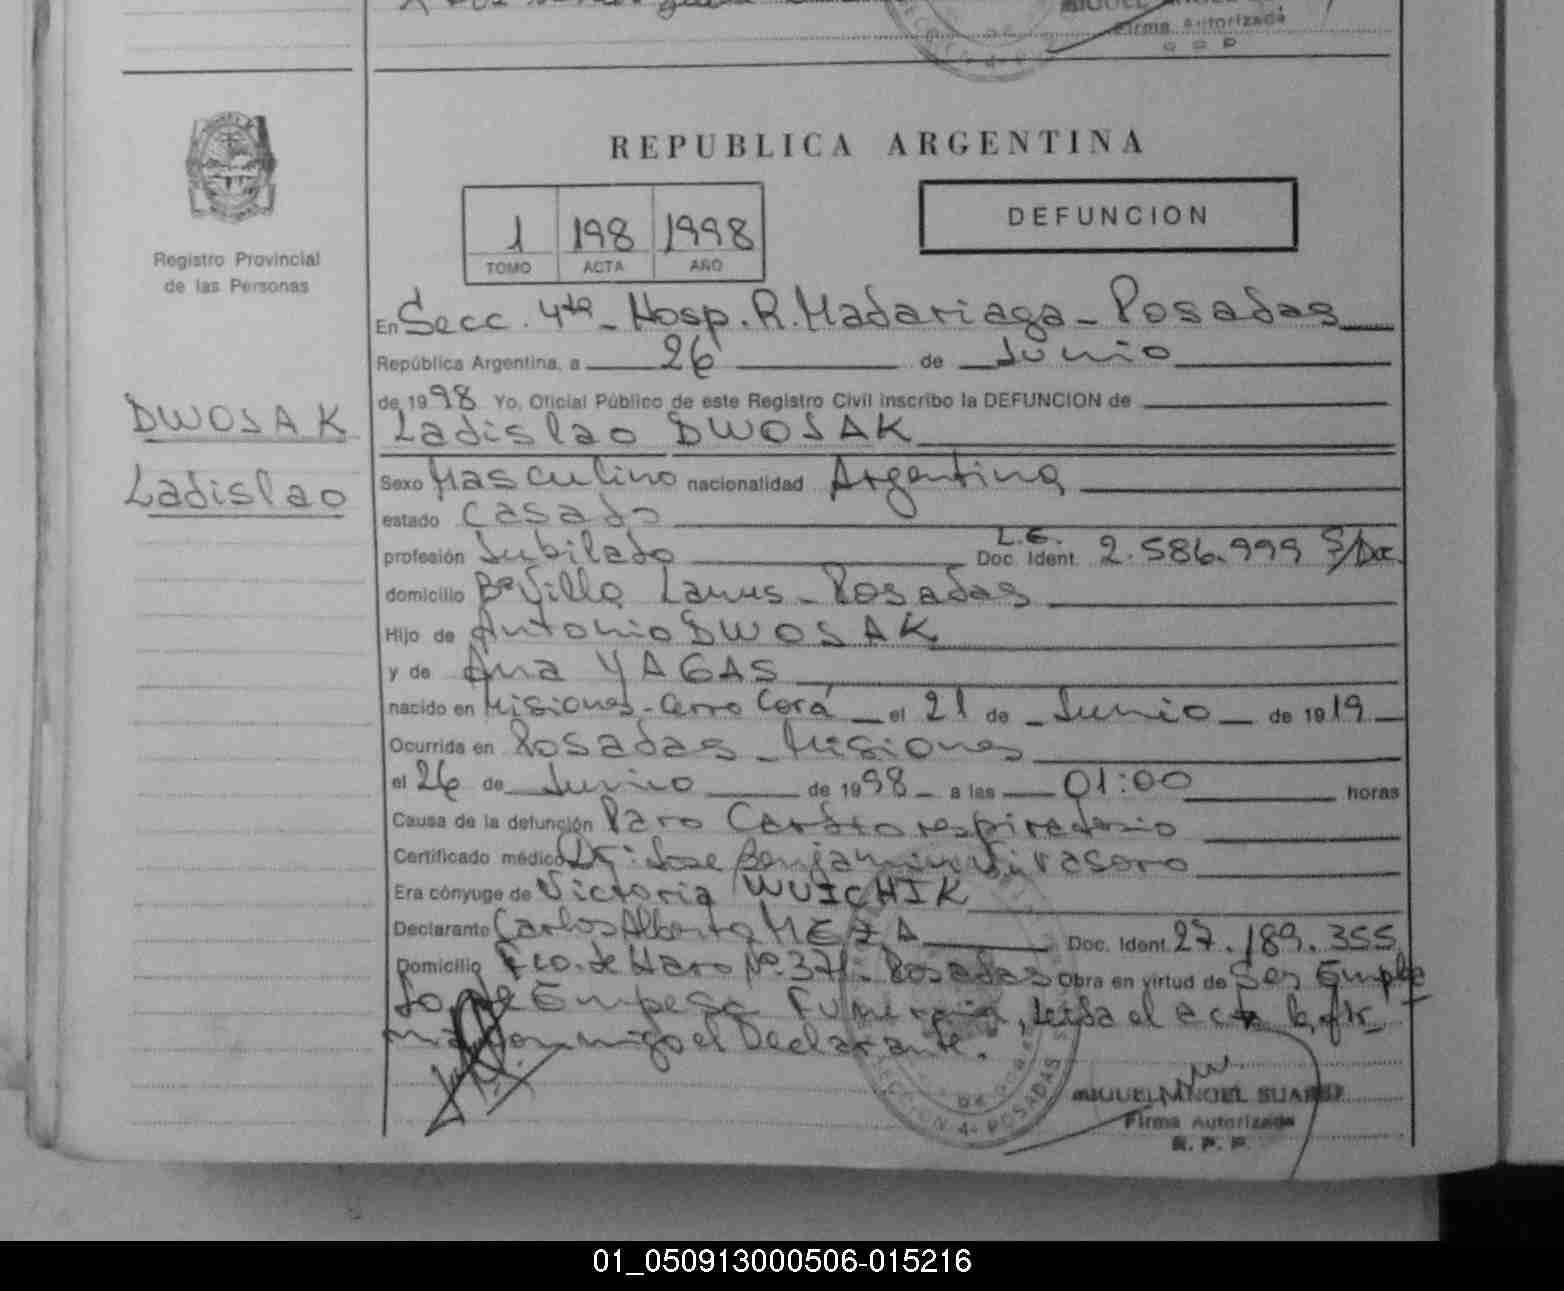 Firma Autorizada
REPUBLICA ARGENTINA
1 198 1998
TOMO ACTA AÑO
DEFUNCION
Registro Provincial
de las Personas
En Secc. 4ta - Hosp. R. Madariaga - Posadas
República Argentina, a 26 de Junio
de 1998 Yo, Oficial Público de este Registro Civil inscribo la DEFUNCION de
Ladislao DWOSAK
DWOSAK
Ladislao
Sexo Masculino nacionalidad Argentina
estado Casado
profesión Jubilado L.E. Doc. Ident. 2.586.999 S/Doc
domicilio Bº Villa Lanus - Posadas
Hijo de Antonio DWOSAK
y de Ana YAGAS
nacido en Misiones - Cerro Corá el 21 de Junio de 1919
Ocurrida en Posadas - Misiones
el 26 de Junio de 1998 a las 01:00 horas
Causa de la defunción Paro Cardiorespiratorio
Certificado médico Dr: Jose Benjamin Virasoro
Era cónyuge de Victoria WUICHIK
Declarante Carlos Alberto MEZA Doc. Ident. 27.189.355
Domicilio Fco. de Haro Nº 371 - Posadas Obra en virtud de Ser Emplea
do de Empesa Funeraria, leida el acta la fir
ma conmigo el Declarante.
SECCION 4a POSADAS
MIGUEL ANGEL SUAREZ
Firma Autorizada
R. P. P.
01_050913000506-015216